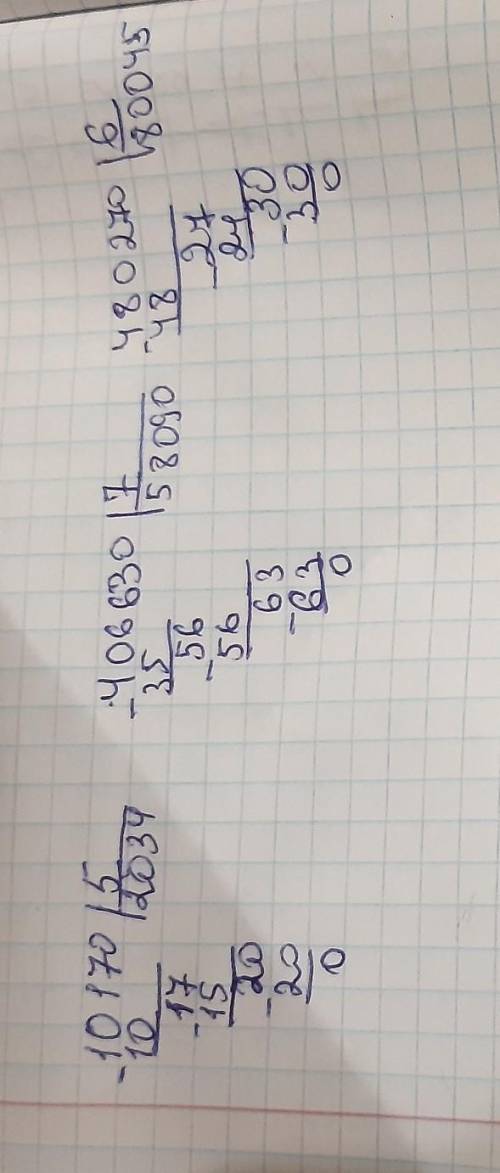 -10170 | 5
10 | 2034
-17
15
-20
20
0
-406630 | 7
35 | 58090
-56
56
63
-63
0
-480270 | 6
48 | 80045
-27
24
-30
30
0